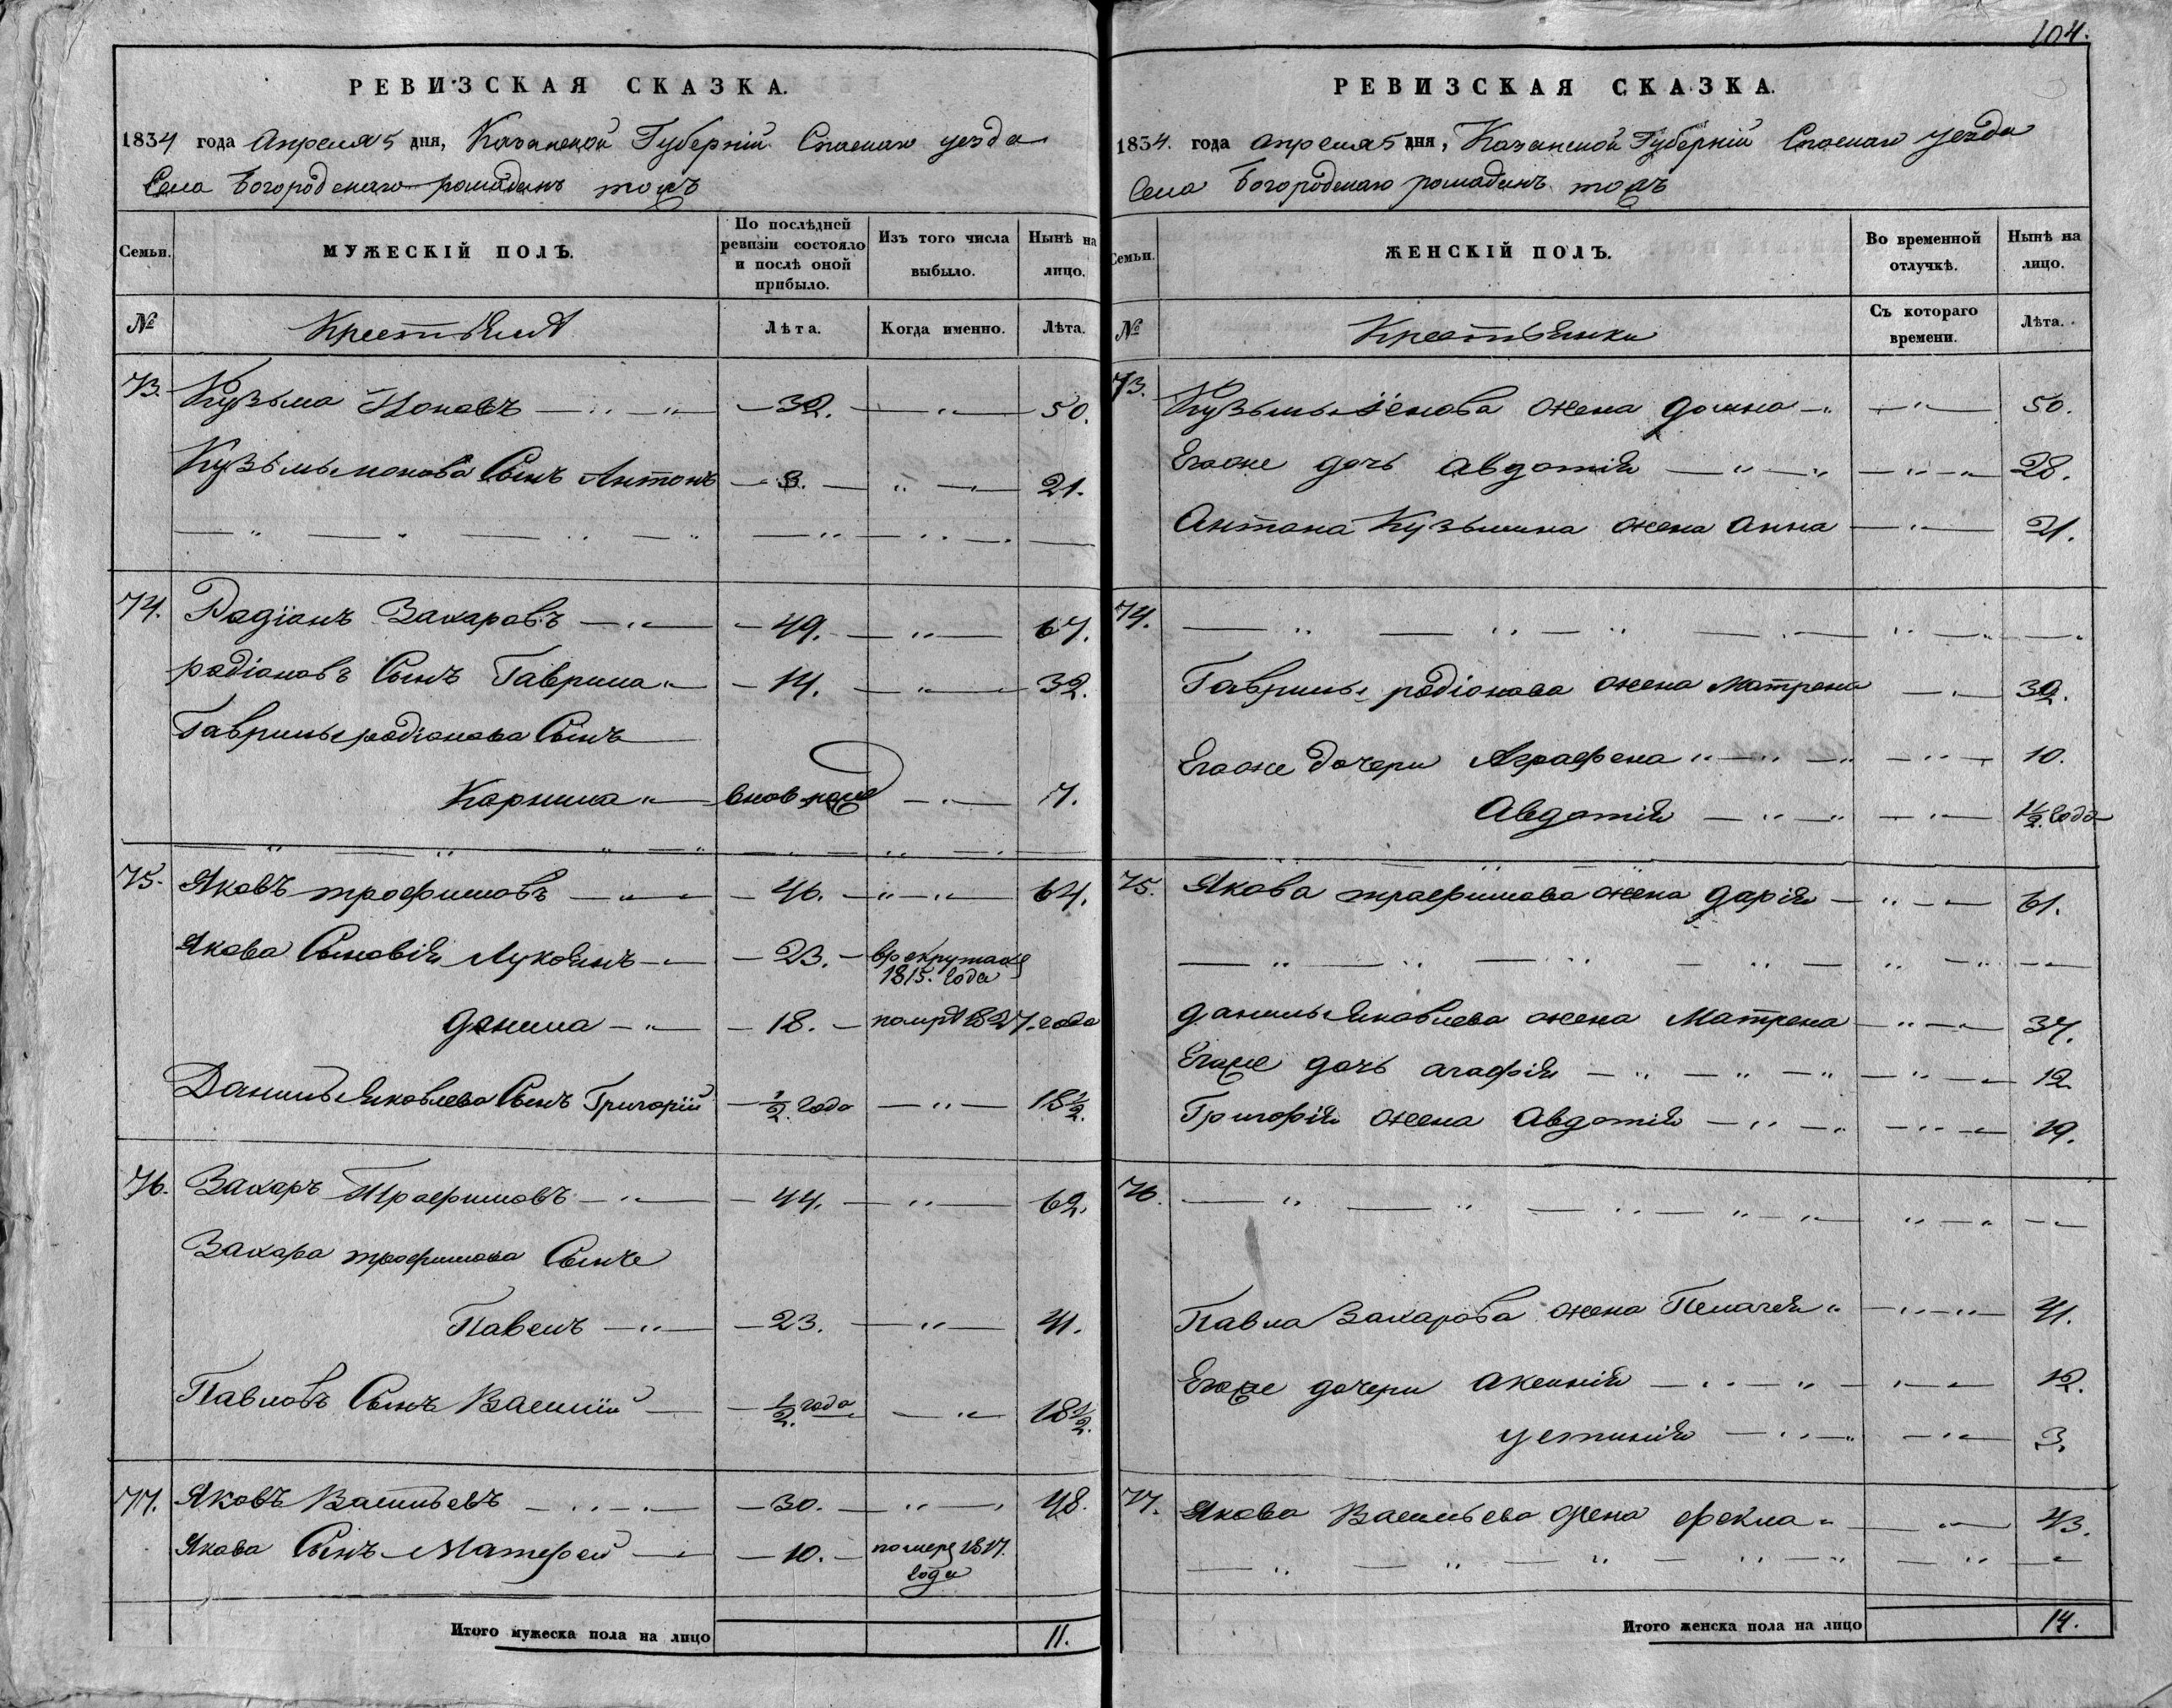 РЕВИЗСКАЯ СКАЗКА.
1834 года Апреля 5 дня, Казанской Губернiи Спаскаго уезда
Села Богородскаго ромадань тожъ
Семьи.
МУЖЕСКІЙ ПОЛЪ.
По послѣдней ревизіи состояло и послѣ оной прибыло.
Изъ того числа выбыло.
Нынѣ на лицо.
№
Крестьяня
Лѣта.
Когда именно.
Лѣта.
73. Кузьма Ионовъ — 32. — 50.
Кузьмы ионова Сынъ Антонъ — 3. — 21.
74. Радiонъ Захаровъ — 49. — 67.
радiоновъ Сынъ Гаврила — 14. — 32.
Гаврилы радiонова Сынъ
Корнила — вновь рожд — 7.
75. Яковъ трофимовъ — 46. — 64.
Якова Сыновiя Лукоянъ — 23. — врекрутахъ
1815. года
данила — 18. — помрѣ 1827. года
Данилы Яковлева Сынъ Григорiй — ½ года — 18½.
76. Захаръ Трофимовъ — 44. — 62.
Захара трофимова Сынъ
Павелъ — 23. — 41.
Павловъ Сынъ Василiй — ½ года — 18½.
77. Яковъ Васильевъ — 30. — 48.
Якова Сынъ Матфей — 10. — помере 1817.
года
Итого мужеска пола на лицо 11.
104.
РЕВИЗСКАЯ СКАЗКА.
1834. года апреля 5 дня, Казанской Губернiи Спаскаго уезда
Села Богородскаго ромадань тожъ
Семьи.
ЖЕНСКІЙ ПОЛЪ.
Во временной отлучкѣ.
Нынѣ на лицо.
№
Крестьянки
Съ котораго времени.
Лѣта.
73. Кузьмы ионова жена домна — 50.
Егоже дочь авдотiя — 28.
Антона Кузьмина жена анна — 21.
74.
Гаврилы радiонова жена матрена — 32.
Егоже дочери Аграфена — 10.
Авдотiя — 1½ года
75. Якова трафимова жена дарiя — 61.
данилы яковлева жена Матрена — 37.
Егоже дочь агафiя — 12
Григорiя жена Авдотiя — 19.
76.
Павла Захарова жена Пелагея — 41.
Егоже дочери аксинiя — 12.
устинiя — 3.
77. Якова Васильева жена фекла — 43.
Итого женска пола на лицо 14.